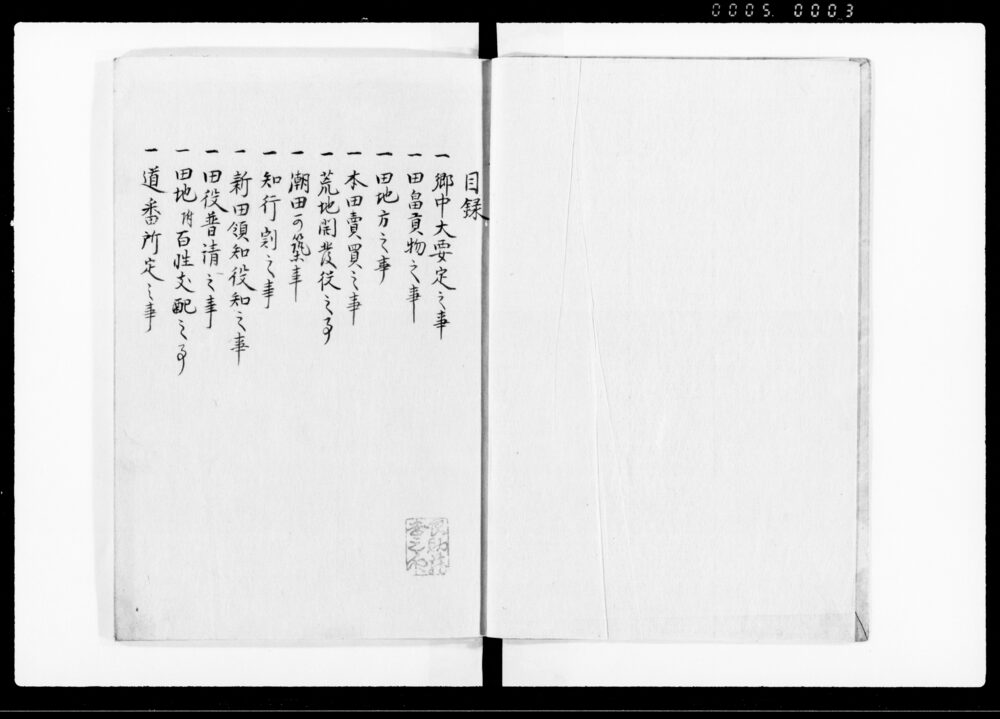 0005 0003
目録
一 郷中大要定之事
一 田畠貢物之事
一 田地方之事
一 本田賣買之事
一 荒地開發従之事
一 潮田可築事
一 知行割之事
一 新田領知役知之事
一 田役普請之事
一 田地附百性支配之事
一 道番所定之事